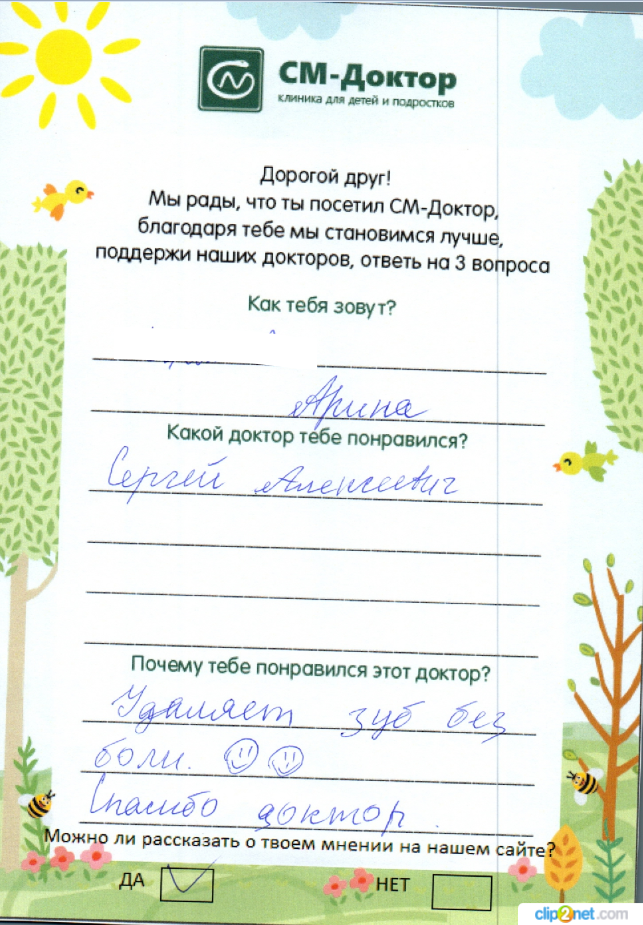 СМ-Доктор
клиника для детей и подростков
Дорогой друг!
Мы рады, что ты посетил СМ-Доктор,
благодаря тебе мы становимся лучше,
поддержи наших докторов, ответь на 3 вопроса
Как тебя зовут?
Арина
Какой доктор тебе понравился?
Сергей Алексеевич
Почему тебе понравился этот доктор?
Удаляет зуб без
боли.
Спасибо доктор.
Можно ли рассказать о твоем мнении на нашем сайте?
ДА НЕТ
clip2net.com